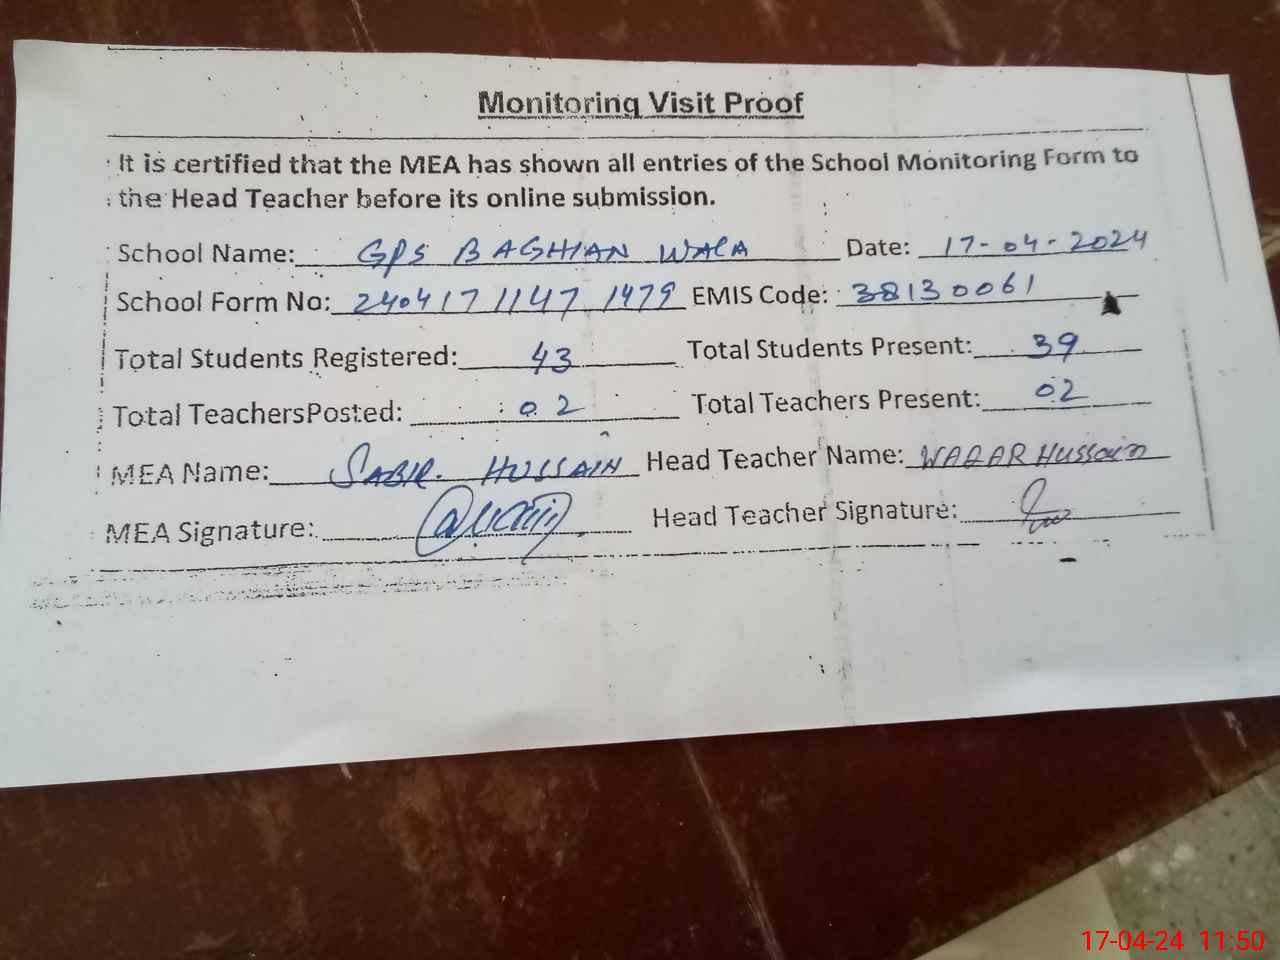 Monitoring Visit Proof
It is certified that the MEA has shown all entries of the School Monitoring Form to
the Head Teacher before its online submission.
School Name: GPS BAGHIAN WALA Date: 17-04-2024
School Form No: 240417 1147 1479 EMIS Code: 38130061
Total Students Registered: 43 Total Students Present: 39
Total TeachersPosted: 02 Total Teachers Present: 02
MEA Name: SABIR HUSSAIN Head Teacher Name: WAQAR HUSSAIN
MEA Signature: Head Teacher Signature:
17-04-24 11:50